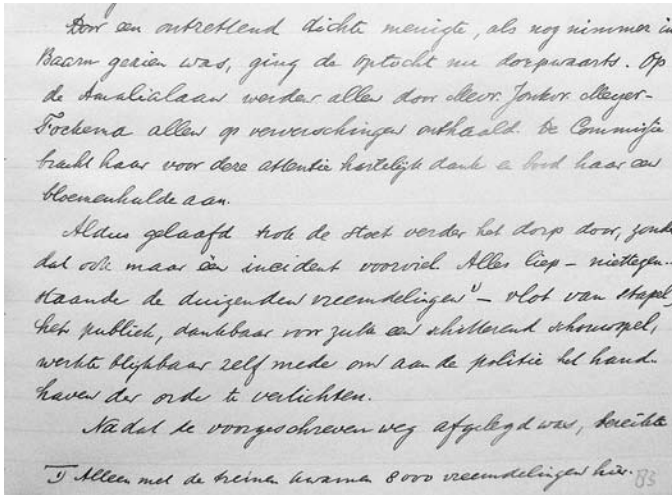 Door een ontzettend dichte menigte, als nog nimmer in
Baarn gezien was, ging de optocht nu dorpwaarts. Op
de Amalialaan werden allen door Mevr. Jonkvr. Meyer-
Fockema allen op ververschingen onthaald. De Commissie
bracht haar voor deze attentie hartelijk dank en bood haar een
bloemenhulde aan.
Aldus gelaafd trok de stoet verder het dorp door, zonder
dat ook maar één incident voorviel. Alles liep – niettegen-
staande de duizenden vreemdelingen 1) – vlot van stapel,
het publiek, dankbaar voor zulk een schitterend schouwspel,
werkte blijkbaar zelf mede om aan de politie het hand-
haven der orde te verlichten.
Nadat de voorgeschreven weg afgelegd was, bereikte
1) Alleen met de treinen kwamen 8000 vreemdelingen hier.
83